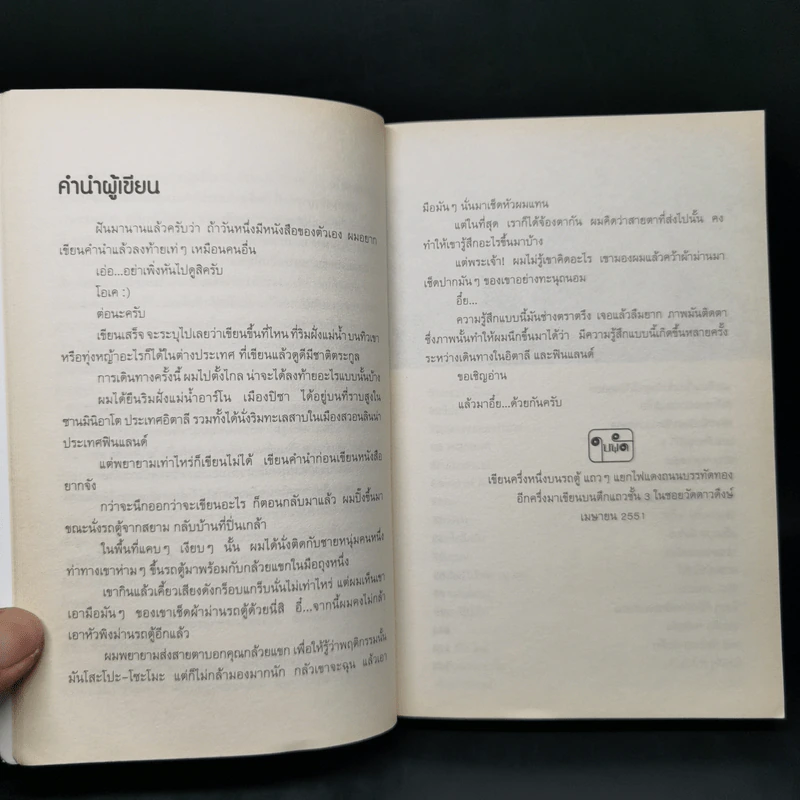 คำนำผู้เขียน
ฝันมานานแล้วครับว่า ถ้าวันหนึ่งมีหนังสือของตัวเอง ผมอยาก
เขียนคำนำแล้วลงท้ายเท่ๆ เหมือนคนอื่น
เอ่อ...อย่าเพิ่งหันไปดูสิครับ
โอเค :)
ต่อนะครับ
เขียนเสร็จ จะระบุไปเลยว่าเขียนขึ้นที่ไหน ที่ริมฝั่งแม่น้ำ บนทิวเขา
หรือทุ่งหญ้าอะไรก็ได้ในต่างประเทศ ที่เขียนแล้วดูดีมีชาติตระกูล
การเดินทางครั้งนี้ ผมไปตั้งไกล น่าจะได้ลงท้ายอะไรแบบนั้นบ้าง
ผมได้ยืนริมฝั่งแม่น้ำอาร์โน เมืองปิซา ได้อยู่บนที่ราบสูงใน
ซานมินิอาโต ประเทศอิตาลี รวมทั้งได้นั่งริมทะเลสาบในเมืองสวอนลินน่า
ประเทศฟินแลนด์
แต่พยายามเท่าไหร่ก็เขียนไม่ได้ เขียนคำนำก่อนเขียนหนังสือ
ยากจัง
กว่าจะนึกออกว่าจะเขียนอะไร ก็ตอนกลับมาแล้ว ผมปิ๊งขึ้นมา
ขณะนั่งรถตู้จากสยาม กลับบ้านที่ปิ่นเกล้า
ในพื้นที่แคบๆ เงียบๆ นั้น ผมได้นั่งติดกับชายหนุ่มคนหนึ่ง
ท่าทางเขาห่ามๆ ขึ้นรถตู้มาพร้อมกับกล้วยแขกในมือถุงหนึ่ง
เขากินแล้วเคี้ยวเสียงดังกร็อบแกร็บนั่นไม่เท่าไหร่ แต่ผมเห็นเขา
เอามือมันๆ ของเขาเช็ดผ้าม่านรถตู้ด้วยนี่สิ อี๋...จากนี้ผมคงไม่กล้า
เอาหัวพิงม่านรถตู้อีกแล้ว
ผมพยายามส่งสายตาบอกคุณกล้วยแขก เพื่อให้รู้ว่าพฤติกรรมนั้น
มันโสะโปะ-โซะโมะ แต่ก็ไม่กล้ามองมากนัก กลัวเขาจะฉุน แล้วเอา
มือมันๆ นั่นมาเช็ดหัวผมแทน
แต่ในที่สุด เราก็ได้จ้องตากัน ผมคิดว่าสายตาที่ส่งไปนั้น คง
ทำให้เขารู้สึกอะไรขึ้นมาบ้าง
แต่พระเจ้า! ผมไม่รู้เขาคิดอะไร เขามองผมแล้วคว้าผ้าม่านมา
เช็ดปากมันๆ ของเขาอย่างทะนุถนอม
อึ๋ย...
ความรู้สึกแบบนี้มันช่างตราตรึง เจอแล้วลืมยาก ภาพมันติดตา
ซึ่งภาพนั้นทำให้ผมนึกขึ้นมาได้ว่า มีความรู้สึกแบบนี้เกิดขึ้นหลายครั้ง
ระหว่างเดินทางในอิตาลี และฟินแลนด์
ขอเชิญอ่าน
แล้วมาอึ๋ย...ด้วยกันครับ
ใบพัด
เขียนครึ่งหนึ่งบนรถตู้ แถวๆ แยกไฟแดงถนนบรรทัดทอง
อีกครึ่งมาเขียนบนตึกแถวชั้น 3 ในซอยวัดดาวดึงษ์
เมษายน 2551